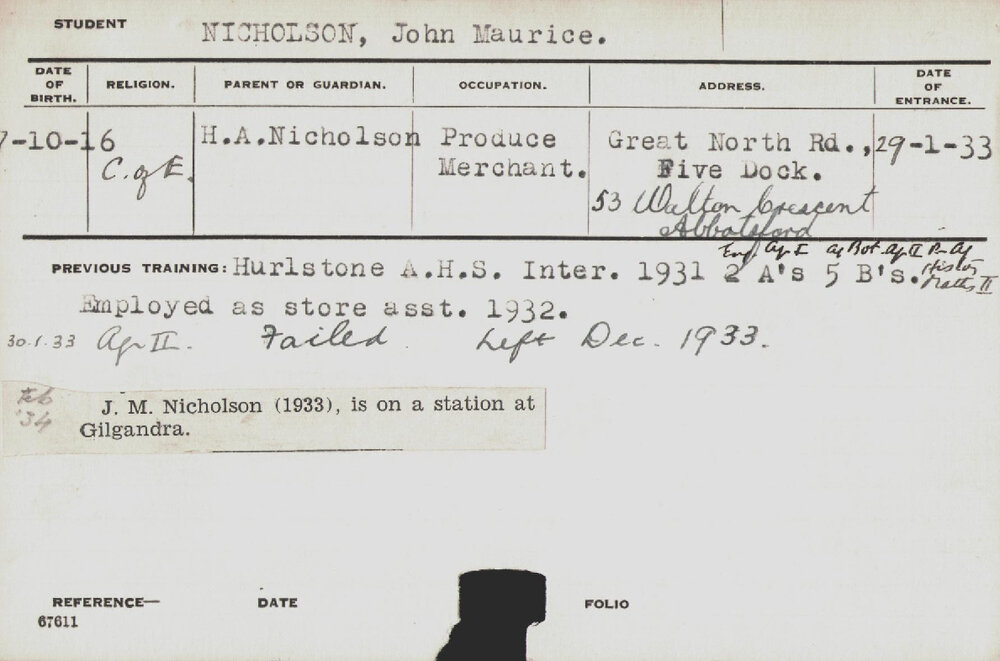 STUDENT NICHOLSON, John Maurice.
DATE OF BIRTH. RELIGION. PARENT OR GUARDIAN. OCCUPATION. ADDRESS. DATE OF ENTRANCE.
7-10-16 C. of E. H.A.Nicholson Produce Merchant. Great North Rd., Five Dock. 29-1-33
53 Walton Crescent
Abbotsford
Eng Ag I Ag Bot Ag II Ag
PREVIOUS TRAINING: Hurlstone A.H.S. Inter. 1931 2 A's 5 B's. History
Maths II
Employed as store asst. 1932.
30.1.33 Ag II. Failed Left Dec. 1933.
Feb '34
J. M. Nicholson (1933), is on a station at
Gilgandra.
REFERENCE— DATE FOLIO
67611